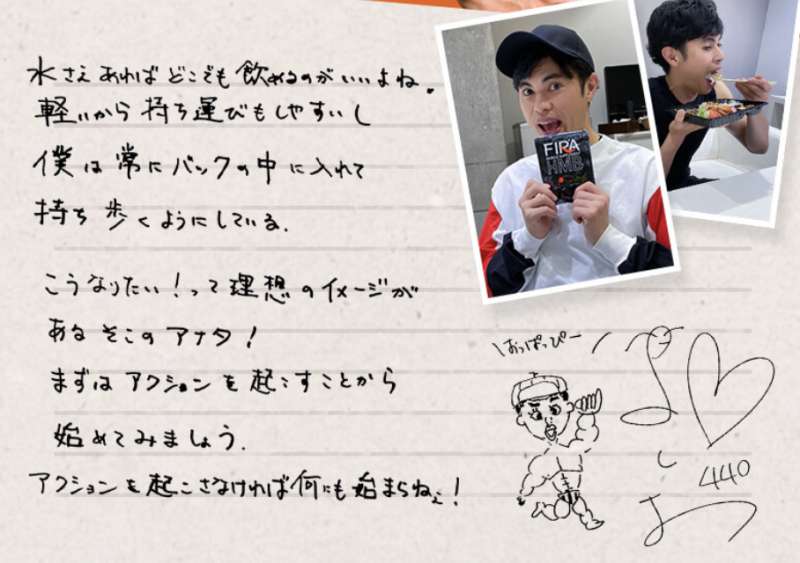 水さえあればどこでも飲めるのがいいよね。
軽いから持ち運びもしやすいし
僕は常にバックの中に入れて
持ち歩くようにしている。
こうなりたい！って理想のイメージが
あるそこのアナタ！
まずはアクションを起こすことから
始めてみましょう。
アクションを起こさなければ何にも始まらねぇ！
FIRA
HMB
\はっぱっぴー/
440